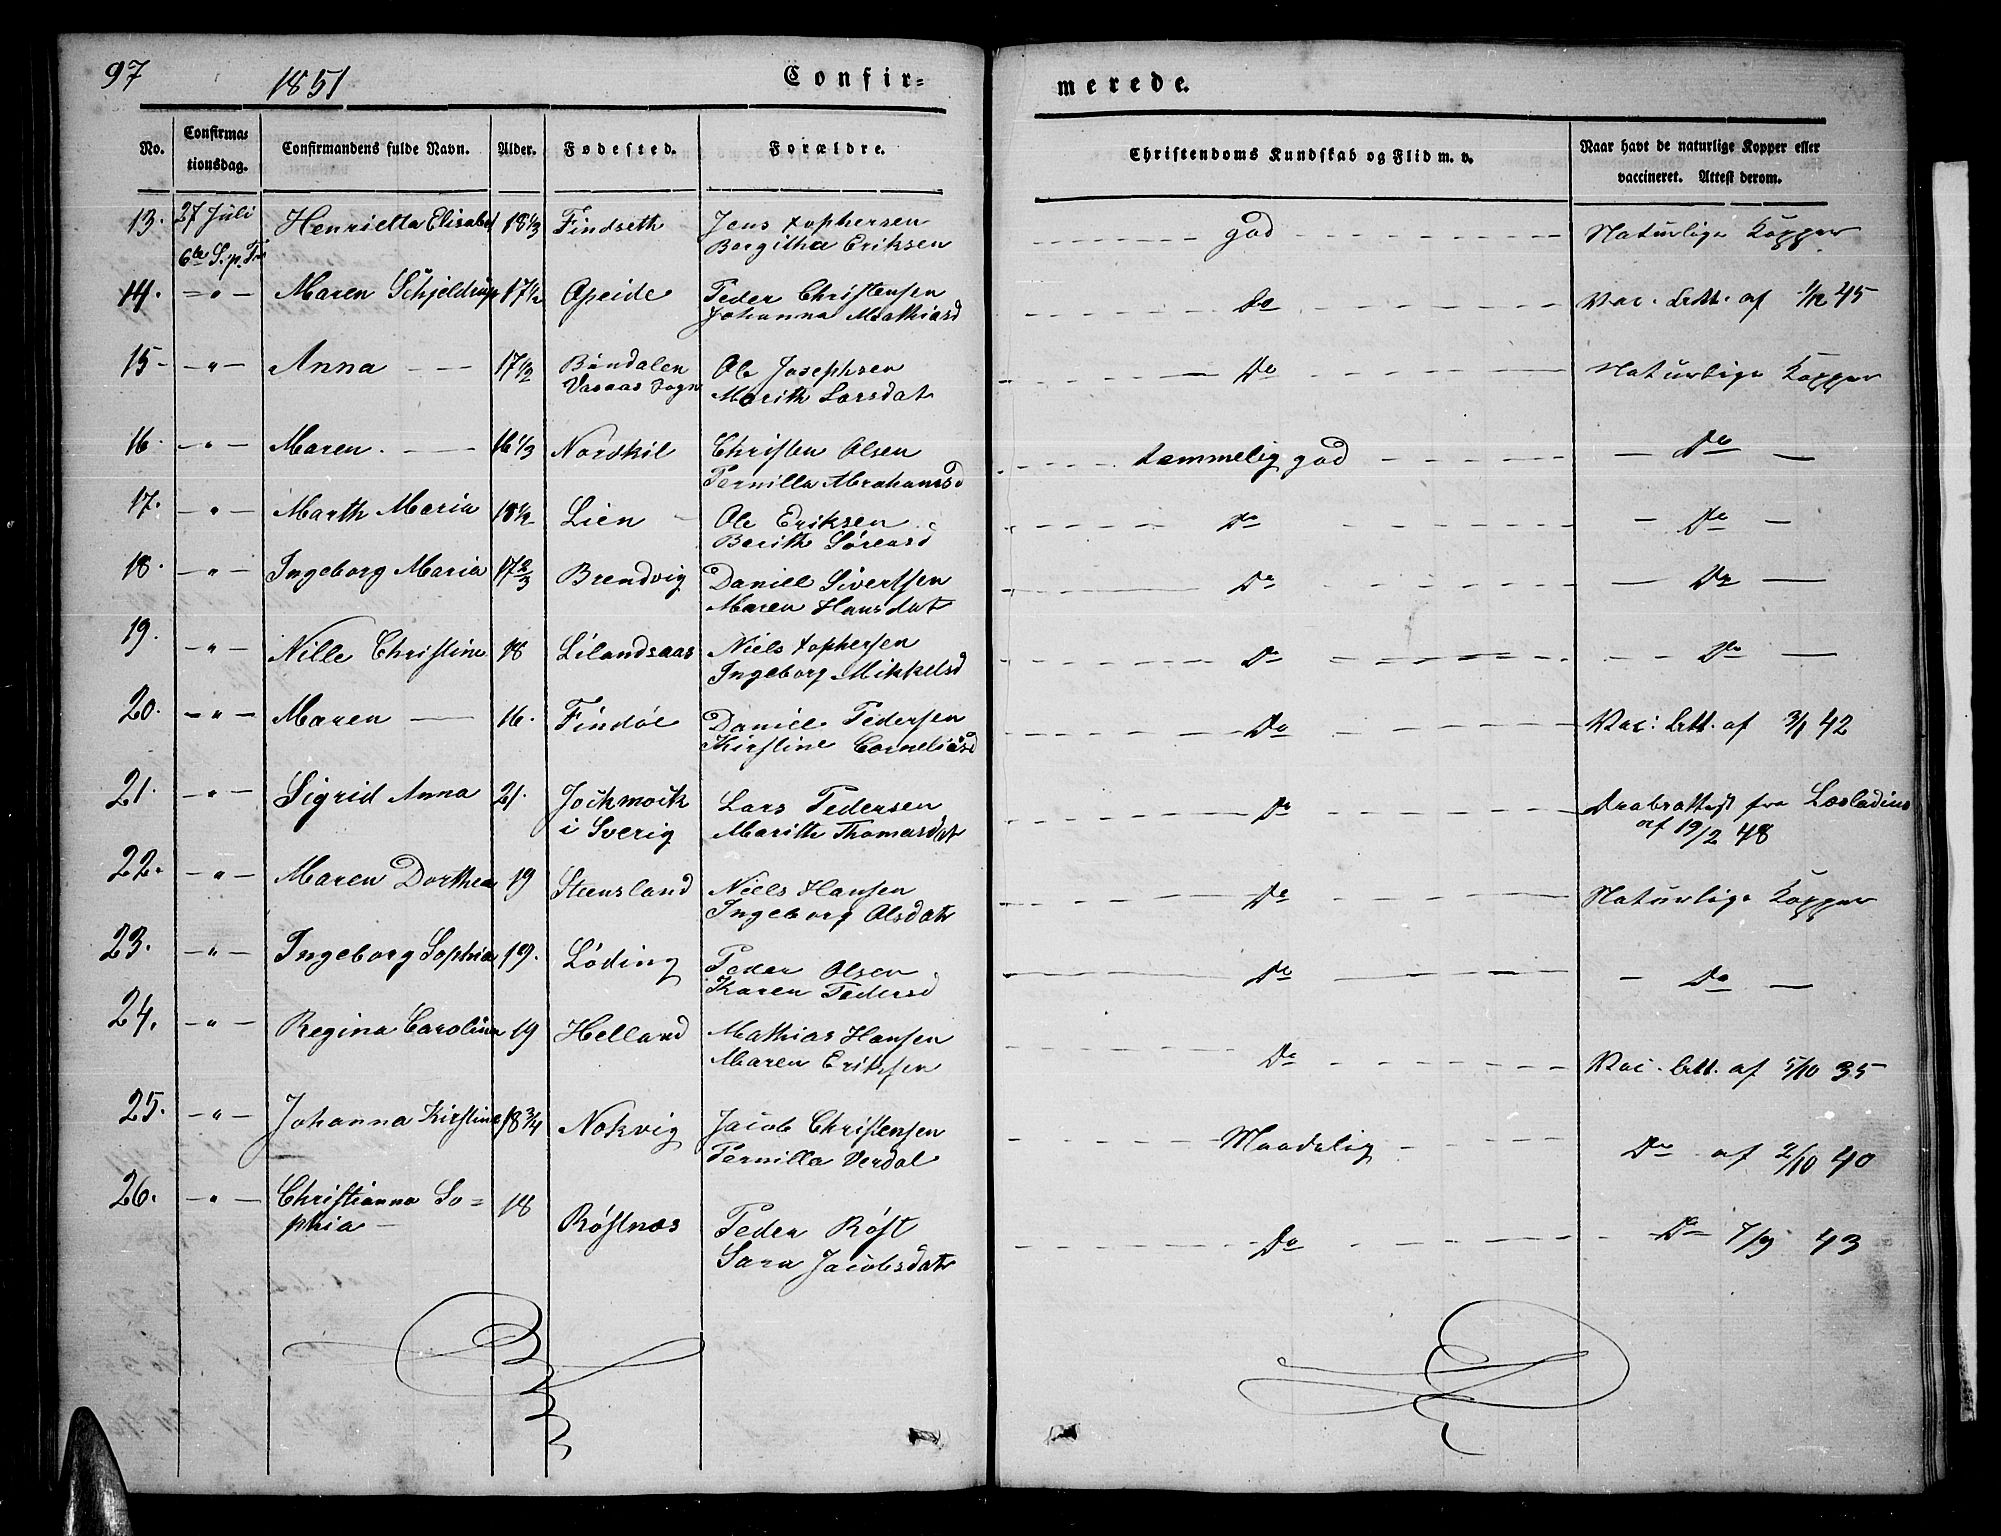 97 1851 Confir= merede.
No. Confirma= tionsdag. Confirmandens fulde Navn. Alder. Fødested. Forældre. Christendoms Kundskab og Flid m. v. Naar havt de naturlige Kopper eller vaccineret. Attest derom.
13. 27 Juli Henrietta Elisabet 18 1/3 Findseth Jens Xophersen god Naturlige Kopper
6te S. p. Tr Borgitha Eriksen
14. – " – Maren Schjeldrup 17 1/2 Opeide Peder Christensen Do Vac. Att. af 1/12 45
Johanna Mathiasd
15 – " – Anna 17 1/2 Bøndalen Ole Josephsen Do Naturlige Kopper
Vasaas Sogn Marith Larsdat
16. – " – Maren. 16 1/3 Norskil Christen Olsen temmelig god Do
Pernilla Abrahamsd
17. – " – Marth Maria 18 1/2 Lien Ole Eriksen Do Do
Berith Sørensd
18. – " – Ingeborg Maria 17 2/3 Brendvig Daniel Sivertsen Do Do
Maren Hansdat
19. – " – Nille Christine 18 Lilandsaas Niels Xophersen Do Do
Ingeborg Mikkelsd
20. – " – Maren 16. Findøe Daniel Pedersen Do Vac: Att. af 3/1 42
Kirstine Corneliasd
21. – " – Sigrid Anna 21. Jochmock Lars Pedersen Do Daabsattest fra Læstadius
i Sverig Marith Thomasdat af 19/2 48
22. – " – Maren Dorthea 19 Steensland Niels Hansen Do Naturlige Kopper
Ingeborg Olsdatr
23. – " – Ingeborg Sophia 19. Løding Peder Olsen Do Do
Karen Pedersd
24. – " – Regina Carolina 19 Helland Mathias Hansen Do Vac. Att. af 5/10 35
Maren Eriksen
25. – " – Johanna Kirstine 18 3/4 Nokvig Jacob Christensen Maadelig Do af 2/10 40
Pernilla Verdal
26. – " – Christianna So= 18 Røstnæs Peder Røst Do Do 7/9 43
phia – Sara Jacobsdatr